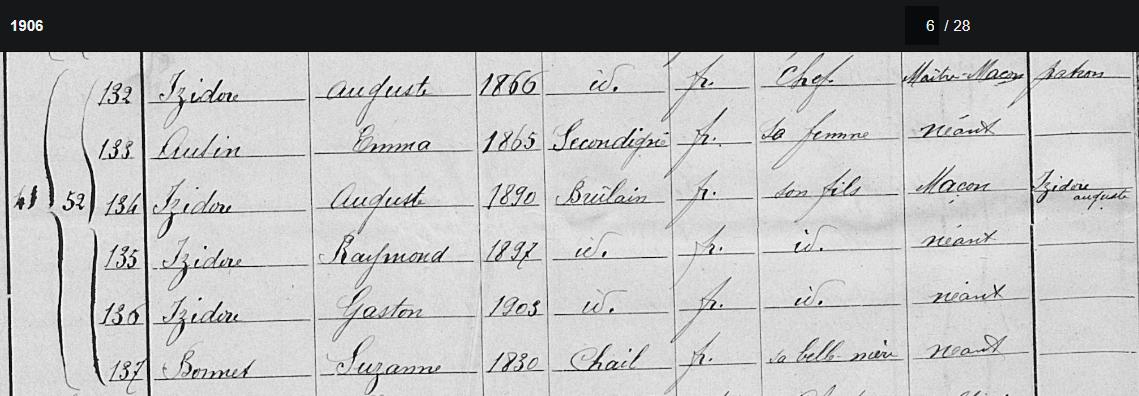 1906
6 / 28
132 Izidore Auguste 1866 id. fr. Chef Maître-Maçon patron
133 Aubin Emma 1865 Secondigné fr. sa femme néant
41 52 134 Izidore Auguste 1890 Brûlain fr. son fils Maçon Izidore auguste
135 Izidore Raymond 1897 id. fr. id. néant
136 Izidore Gaston 1903 id. fr. id. néant
137 Bonnet Suzanne 1830 Chail fr. sa belle-mère néant